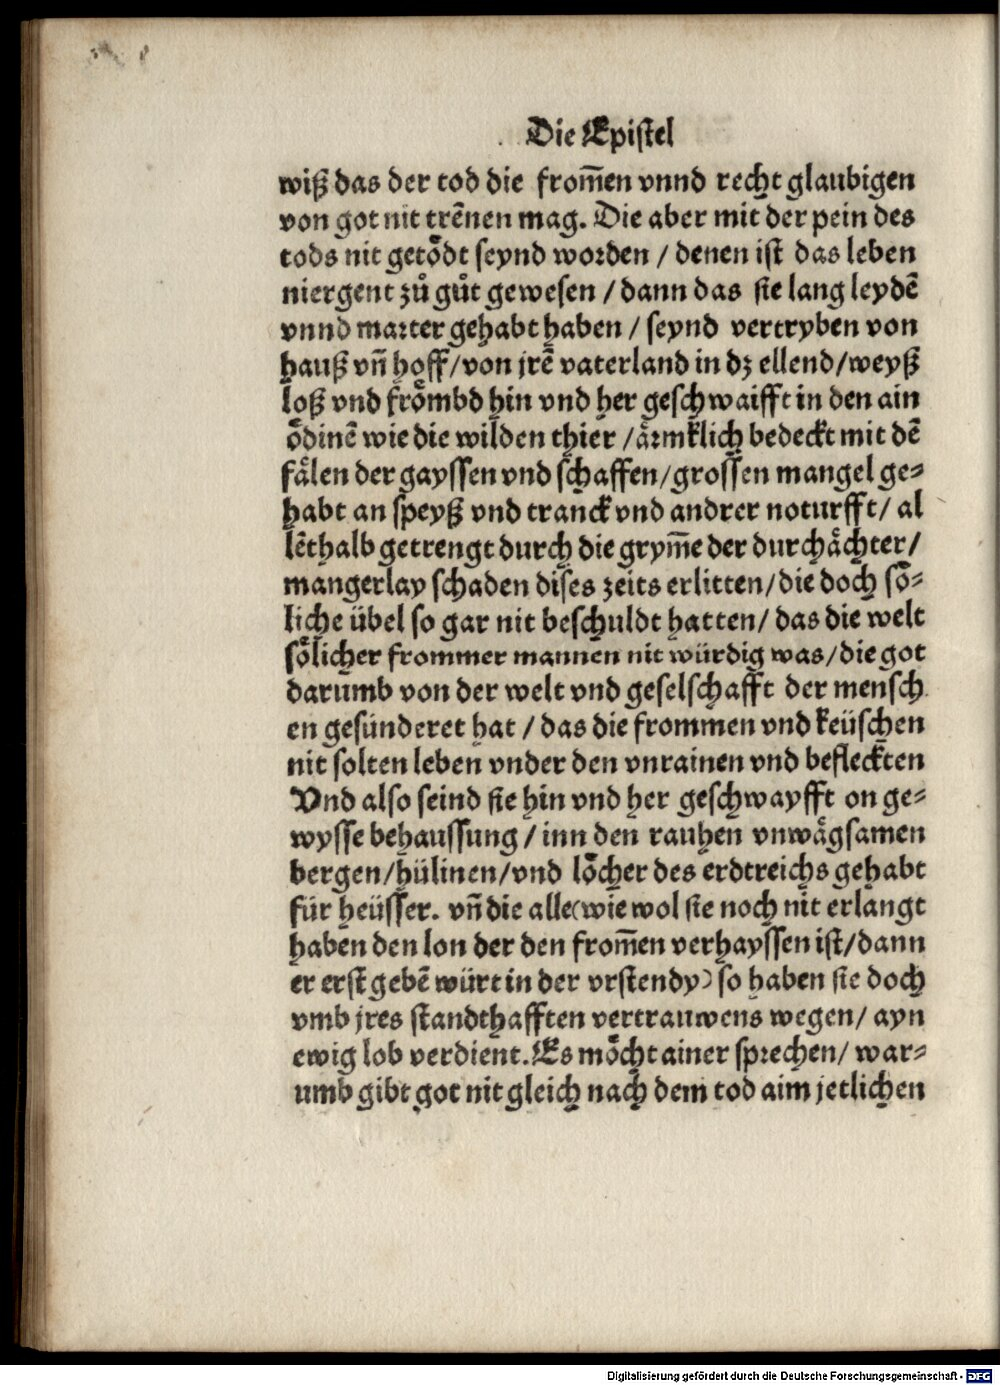 Die Epistel
wiß das der tod die from̅en vnnd recht glaubigen
von got nit trēnen mag. Die aber mit der pein des
tods nit getoͤdt seynd worden / denen ist das leben
niergent zuͦ guͦt gewesen / dann das sie lang leydē
vnnd marter gehabt haben / seynd vertryben von
hauß vn̄ hoff/von jrē vaterland in dz ellend/weyß
loß vnd froͤmbd hin vnd her geschwaifft in den ain
oͤdinē wie die wilden thier /aͤrmklich bedeckt mit dē
faͤlen der gayssen vnd schaffen/grossen mangel ge⸗
habt an speyß vnd tranck vnd andrer noturfft/ al
lēthalb getrengt durch die grym̅e der durchaͤchter/
mangerlay schaden dises zeits erlitten/die doch soͤ⸗
liche übel so gar nit beschuldt hatten/ das die welt
soͤlicher frommer mannen nit würdig was/die got
darumb von der welt vnd geselschafft der mensch
en gesünderet hat / das die frommen vnd keüschen
nit solten leben vnder den vnrainen vnd befleckten
Vnd also seind sie hin vnd her geschwayfft on ge⸗
wysse behaussung / inn den rauhen vnwaͤgsamen
bergen/hülinen/vnd loͤcher des erdtreichs gehabt
für heüsser. vn̄ die alle(wie wol sie noch nit erlangt
haben den lon der den from̅en verhayssen ist/dann
er erst gebē würt in der vrstendy) so haben sie doch
vmb jres standthafften vertrauwens wegen/ ayn
ewig lob verdient. Es moͤcht ainer sprechen/ war⸗
umb gibt got nit gleich nach dem tod aim jetlichen
Digitalisierung gefördert durch die Deutsche Forschungsgemeinschaft - DFG